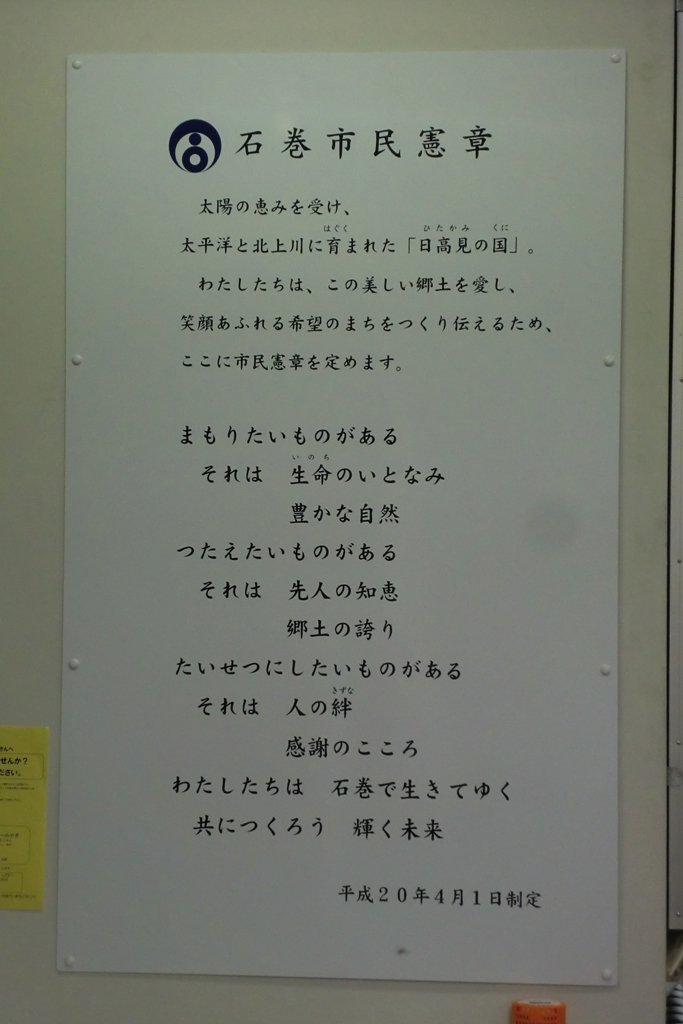 石巻市民憲章
太陽の恵みを受け、
はぐく ひたかみ くに
太平洋と北上川に育まれた「日高見の国」。
わたしたちは、この美しい郷土を愛し、
笑顔あふれる希望のまちをつくり伝えるため、
ここに市民憲章を定めます。
まもりたいものがある
いのち
それは 生命のいとなみ
豊かな自然
つたえたいものがある
それは 先人の知恵
郷土の誇り
たいせつにしたいものがある
きずな
それは 人の絆
感謝のこころ
わたしたちは 石巻で生きてゆく
共につくろう 輝く未来
平成20年4月1日制定
さんへ
せんか?
ださい。